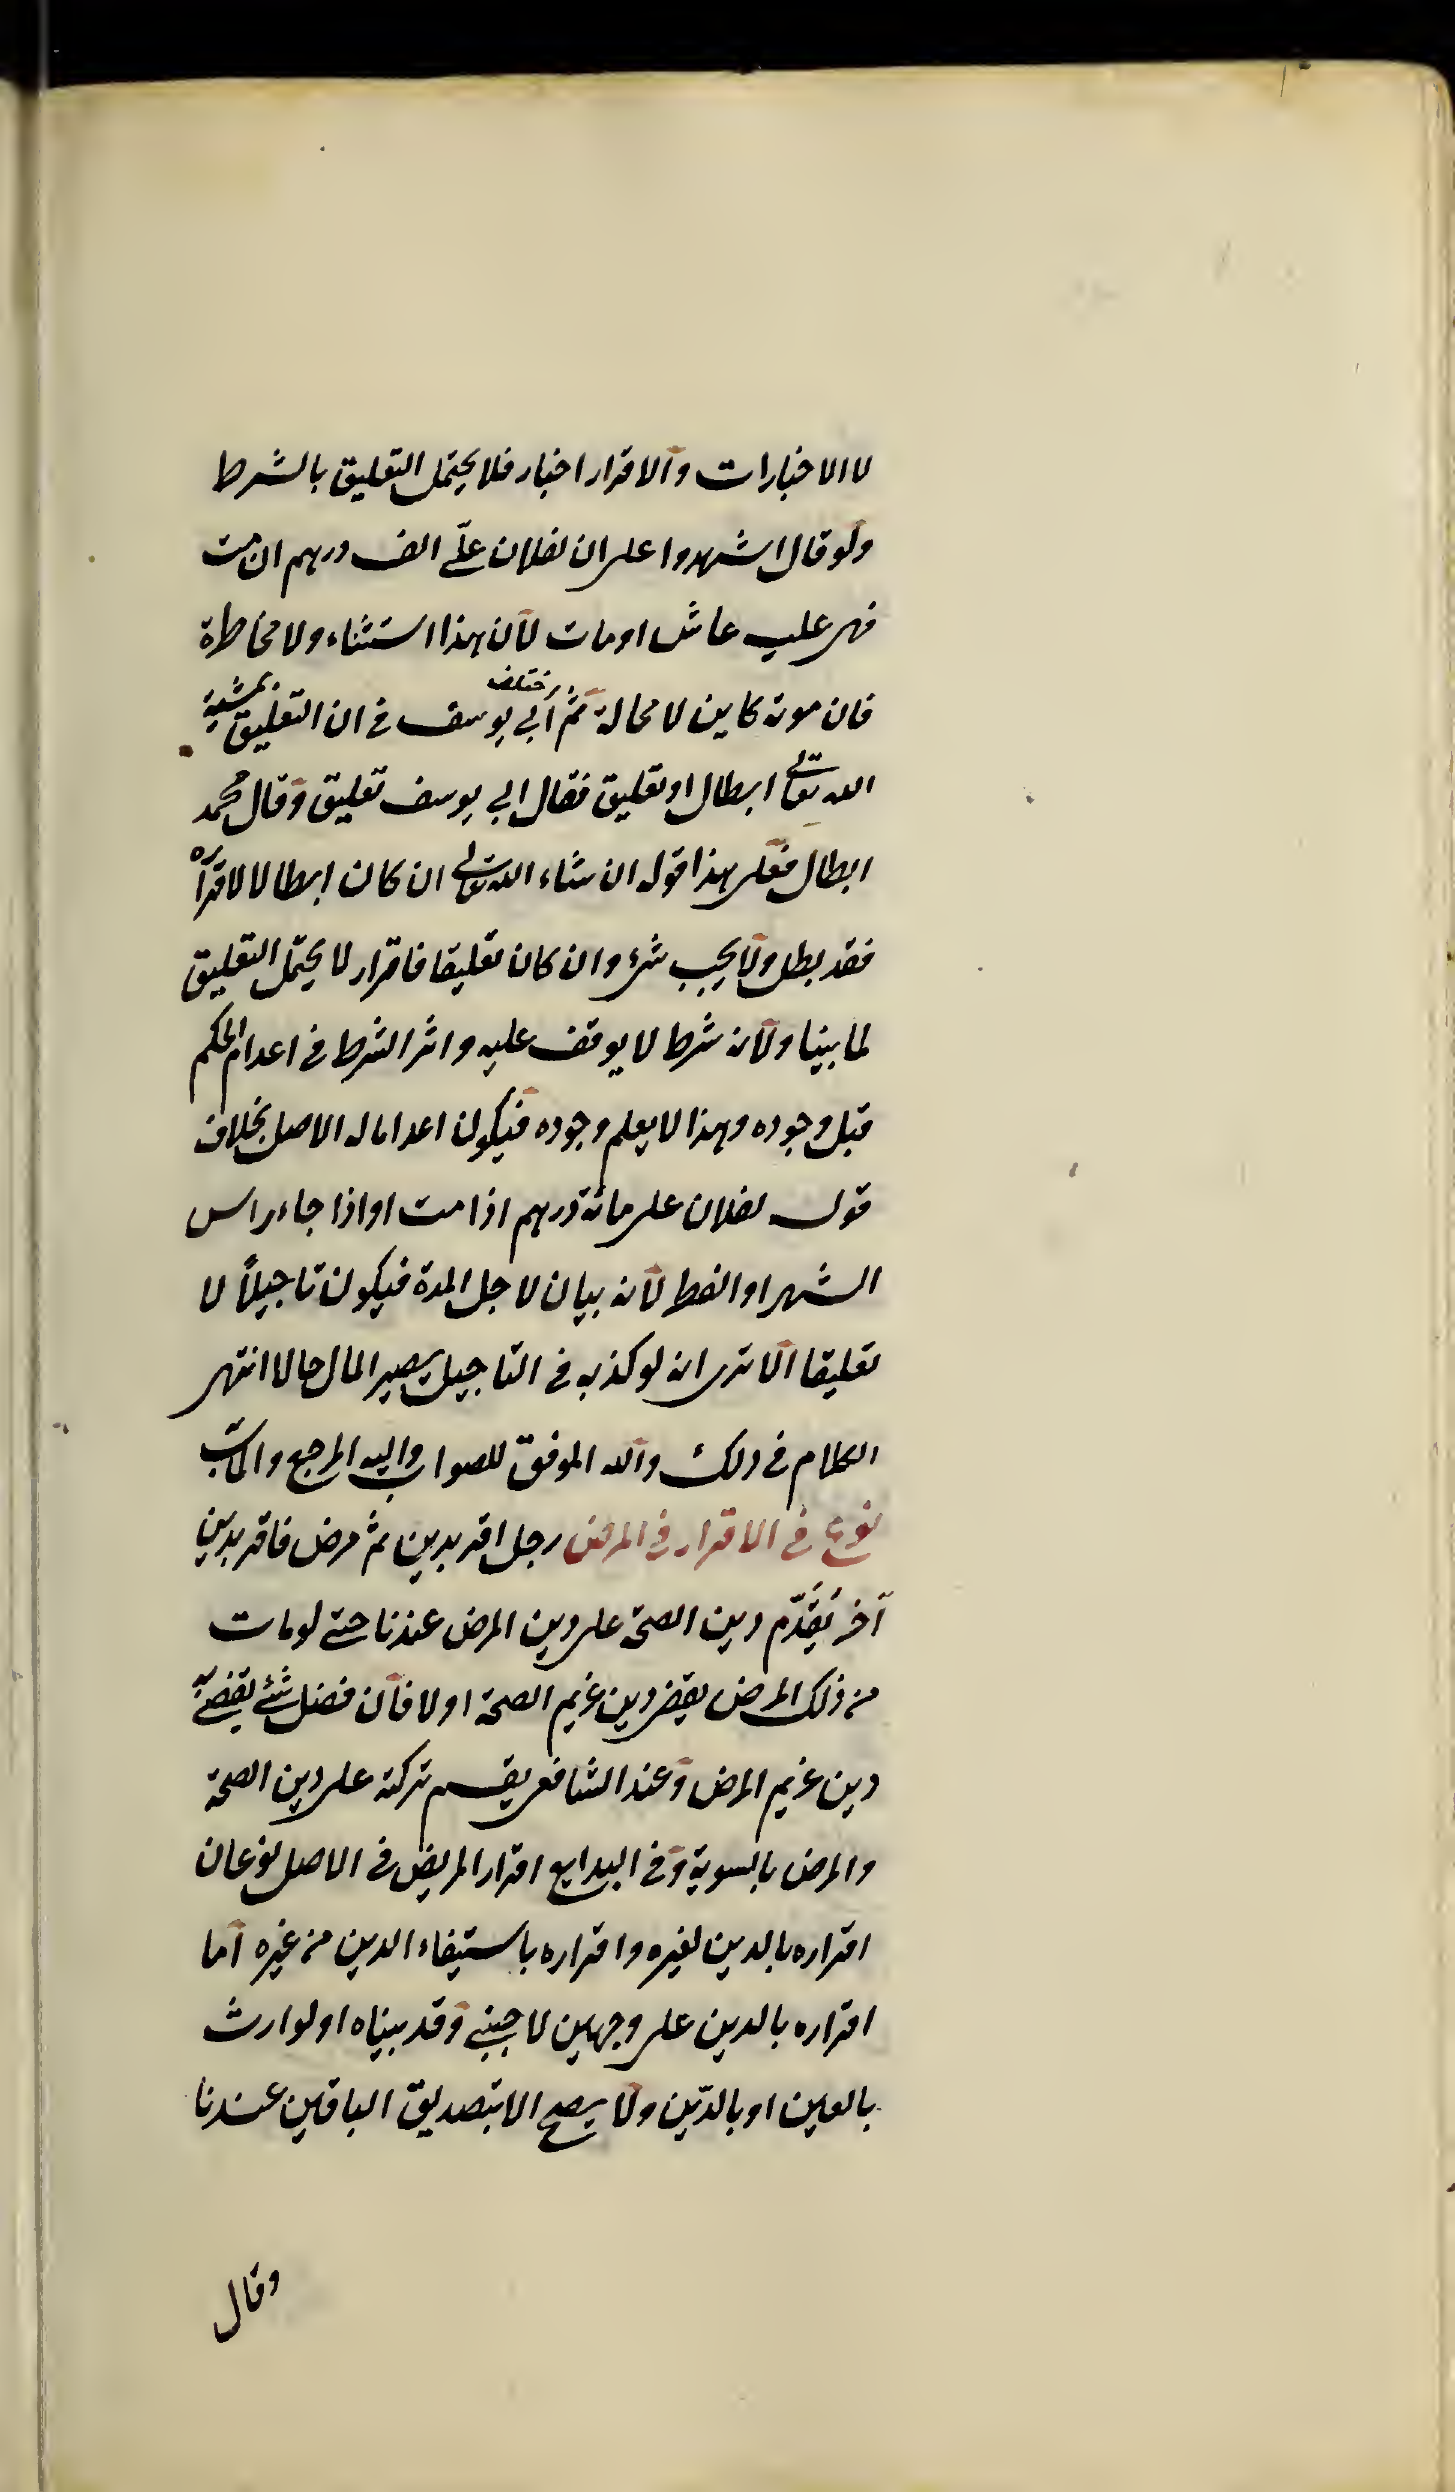 لا الاخبارات والاقرار اخبار فلا يحتمل التعليق بالشرط
ولو قال اشهدوا على ان لفلان علّي الف درهم ان مت
فهى عليه عاش او مات لان هذا استثناء ولا مخاطرة
فان موته كاين لا محالة ثم اختلف ابي يوسف في ان التعليق بمشية
الله تعالى ابطال او تعليق فقال ابي يوسف تعليق وقال محمد
ابطال فعلى هذا قوله ان شاء الله تعالى ان كان ابطالا لاقراره
فقد بطل ولا يجب شئ وان كان تعليقا فاقرار لا يحتمل التعليق
لما بينا ولانه شرط لا يوقف عليه واثر الشرط في اعدام الحكم
قبل وجوده وهذا لا يعلم وجوده فيكون اعداما له الاصل بخلاف
قوله لفلان على مائة درهم اذا مت او اذا جاء راس
الشهر او الفطر لانه بيان لاجل المدة فيكون تاجيلاً لا
تعليقا الا ترى انه لو كذبه في التاجيل يصير المال حالا انتهى
الكلام في ذلك والله الموفق للصواب واليه المرجع والماب
نوع في الاقرار في المرض رجل اقر بدين ثم مرض فاقر بدين
آخر يُقَدّم دين الصحة على دين المرض عندنا حتى لو مات
من ذلك المرض يقضى دين غريم الصحة اولا فان فضل شئ يقضى به
دين غريم المرض وعند الشافعى يقسم تركته على دين الصحة
والمرض بالسوية وفي البدايع اقرار المريض في الاصل نوعان
اقراره بالدين لغيره واقراره باستيفاء الدين من غيره اما
اقراره بالدين على وجهين لاجنبي وقد بيناه او لوارث
بالعين او بالدّين ولا يصح الا بتصديق الباقين عندنا
وقال